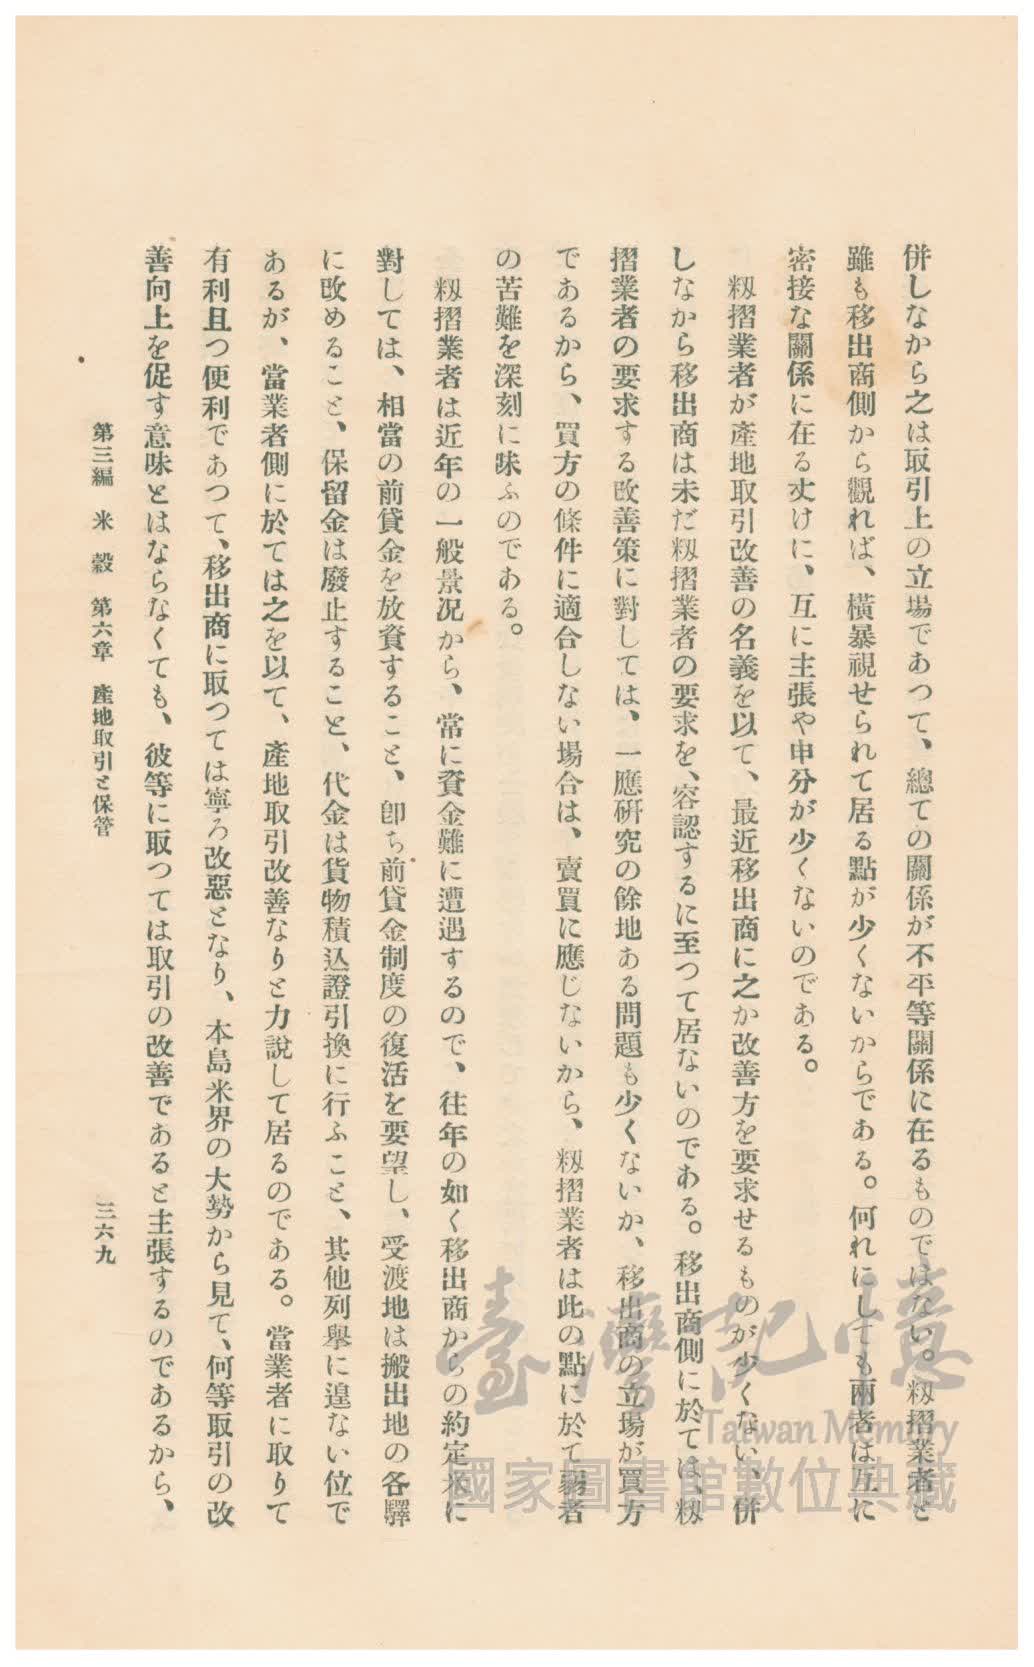 併しなから之は取引上の立場であつて、總ての關係が不平等關係に在るものではない。籾摺業者と
雖も移出商側から觀れば、橫暴視せられて居る點が少くないからである。何れにしても兩者は互に
密接な關係に在る丈けに、互に主張や申分が少くないのである。
籾摺業者が產地取引改善の名義を以て、最近移出商に之か改善方を要求せるものが少くない、併
しなから移出商は未だ籾摺業者の要求を、容認するに至つて居ないのである。移出商側に於ては、籾
摺業者の要求する改善策に對しては、一應硏究の餘地ある問題も少くないか、移出商の立場が買方
であるから、買方の條件に適合しない場合は、賣買に應じないから、籾摺業者は此の點に於て弱者
の苦難を深刻に味ふのである。
籾摺業者は近年の一般景況から、常に資金難に遭遇するので、往年の如く移出商からの約定米に
對しては、相當の前貸金を放資すること、卽ち前貸金制度の復活を要望し、受渡地は搬出地の各驛
に改めること、保留金は廢止すること、代金は貨物積込證引換に行ふこと、其他列擧に遑ない位で
あるが、當業者側に於ては之を以て、產地取引改善なりと力說して居るのである。當業者に取りて
有利且つ便利であつて、移出商に取つては寧ろ改惡となり、本島米界の大勢から見て、何等取引の改
善向上を促す意味とはならなくても、彼等に取つては取引の改善であると主張するのであるから、
第三編 米 穀 第六章 產地取引と保管
三六九
臺灣記憶
Taiwan Memory
國家圖書館數位典藏